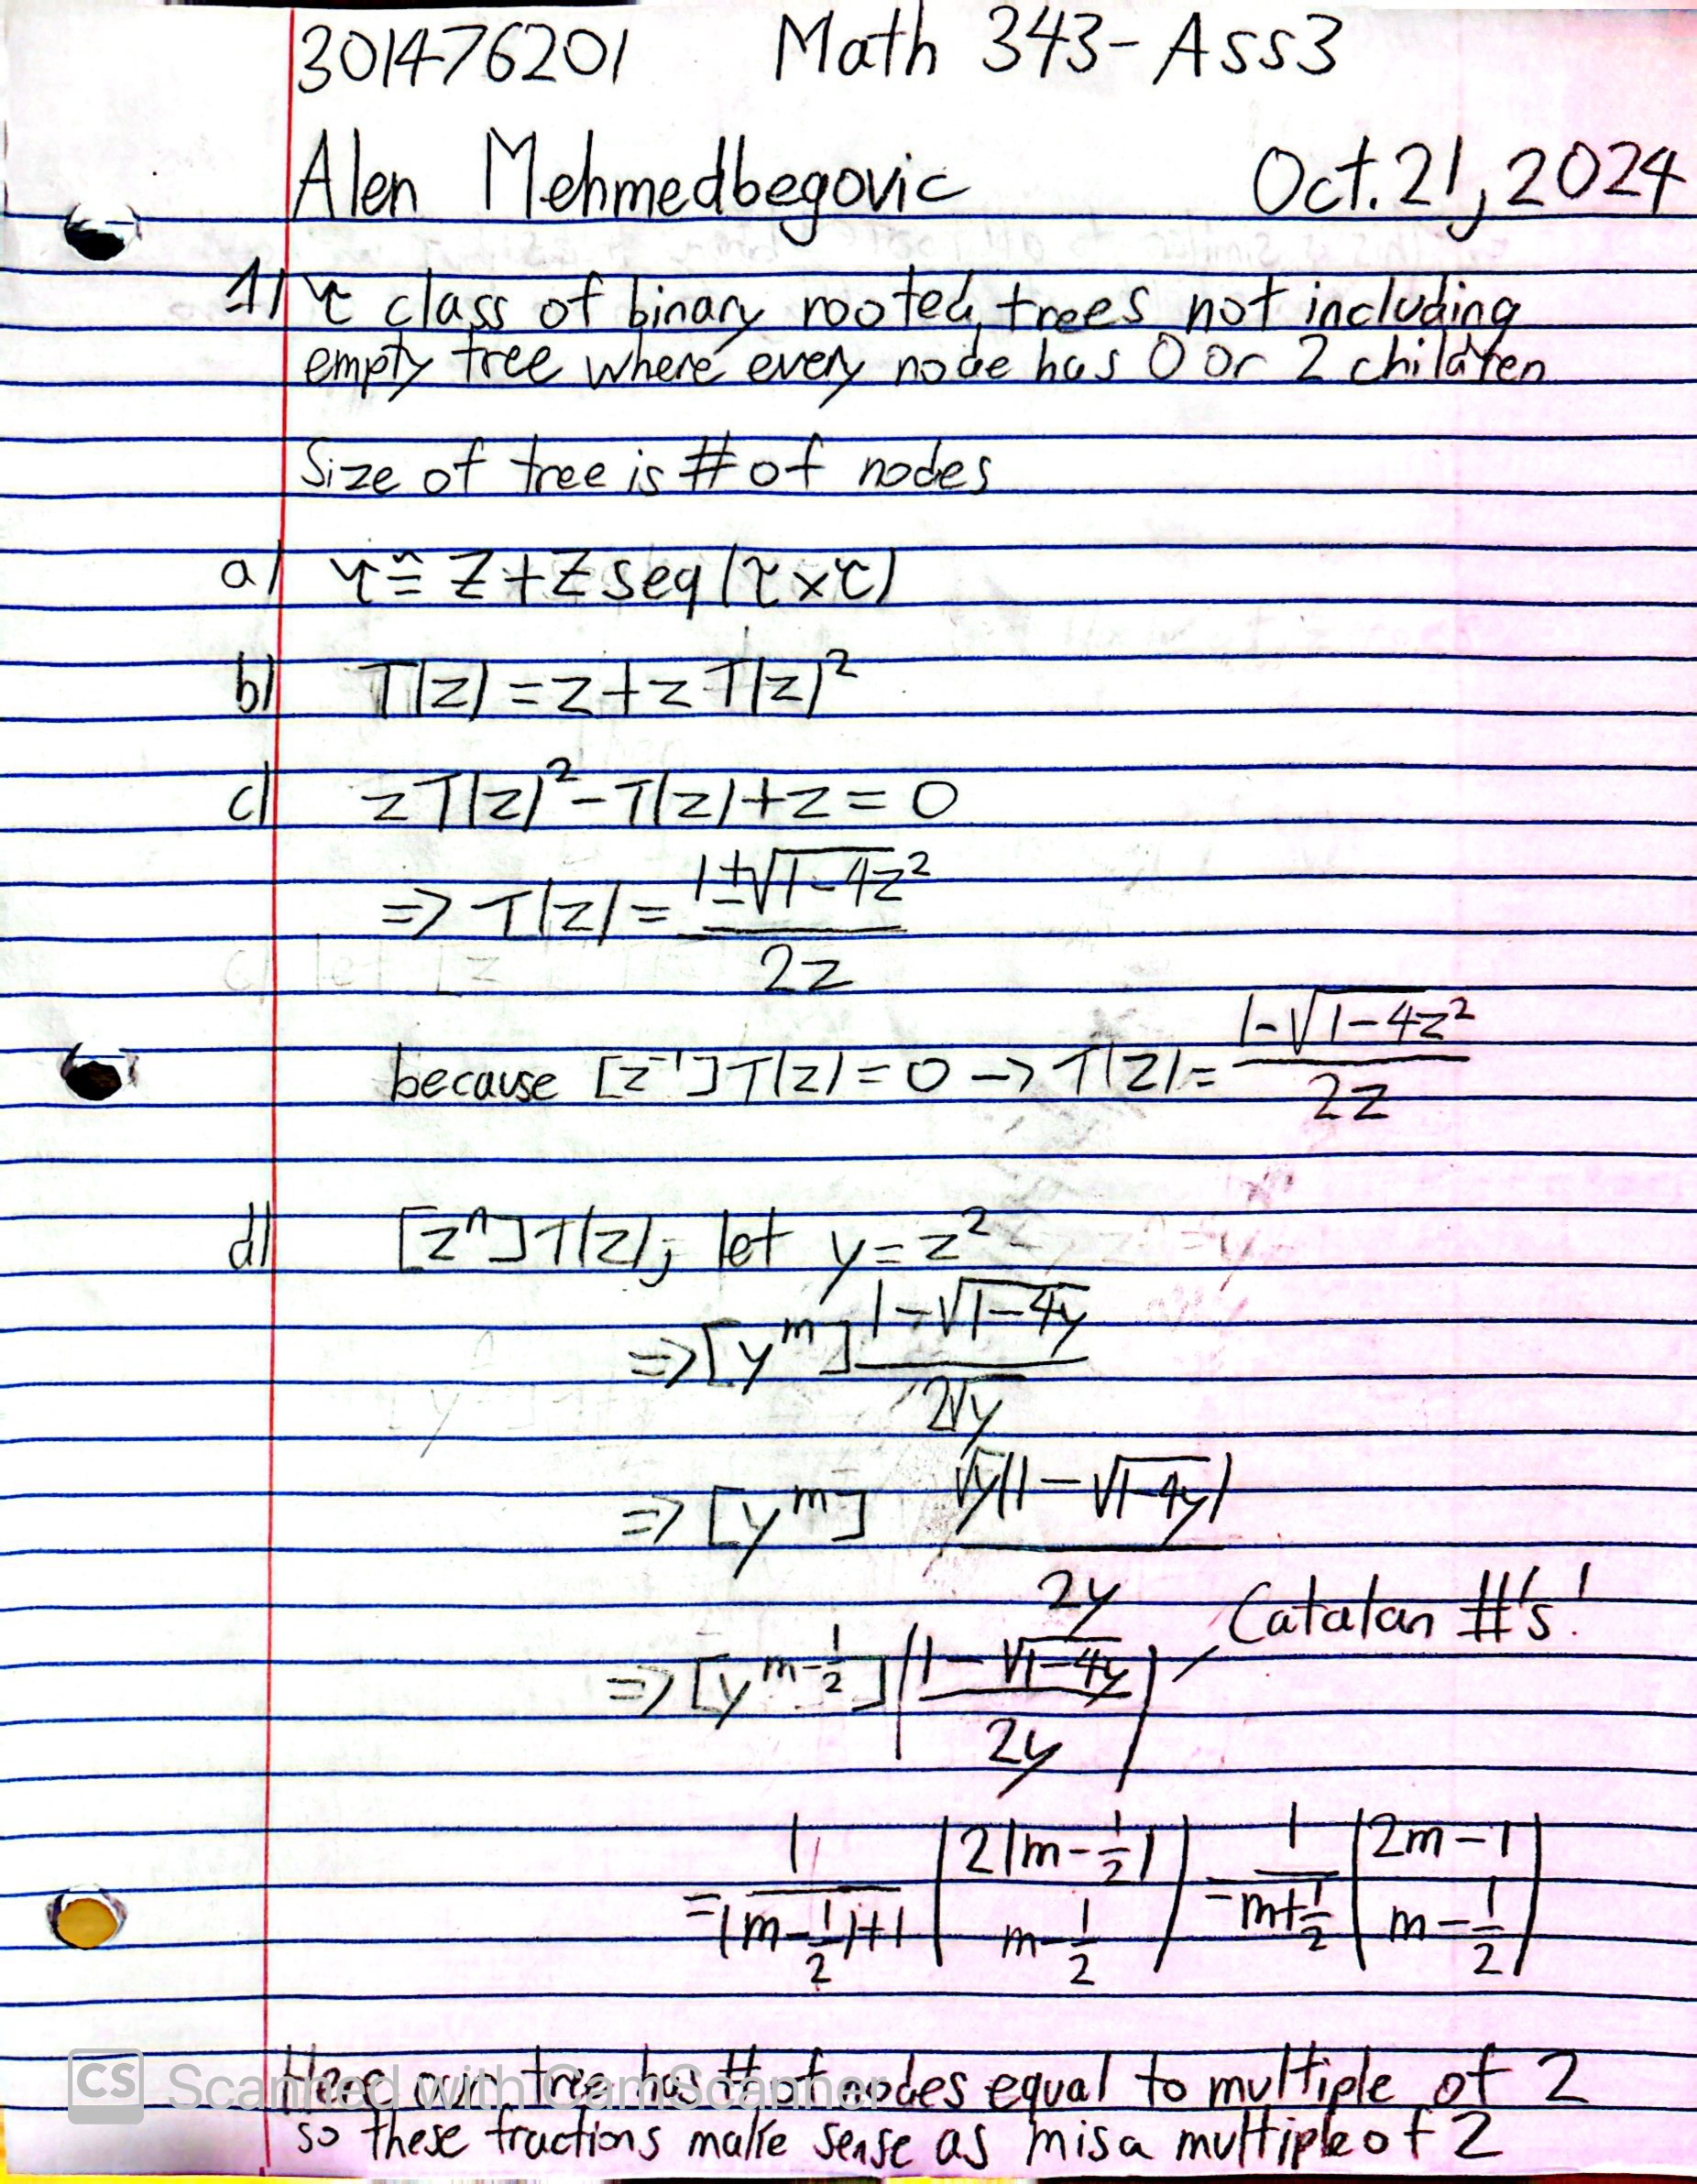 301476201 Math 343-Ass3
Alen Mehmedbegovic Oct. 21, 2024
1) τ class of binary rooted trees not including
empty tree where every node has 0 or 2 children
Size of tree is # of nodes
a) τ ≅ Z + Z seq(τ × τ)
b) T(z) = z + z T(z)²
c) z T(z)² - T(z) + z = 0
=> T(z) = (1 ± √(1-4z²)) / 2z
because [z⁻¹] T(z) = 0 -> T(z) = (1 - √(1-4z²)) / 2z
d) [zⁿ] T(z); let y = z²
=> [y^m] (1 - √(1-4y)) / 2√y
=> [y^m] √y(1 - √(1-4y)) / 2y
=> [y^(m-1/2)] ((1 - √(1-4y)) / 2y) Catalan #'s!
= 1/((m-1/2)+1) (2(m-1/2) | m-1/2) = 1/(m+1/2) (2m-1 | m-1/2)
Here our tree has # of nodes equal to multiple of 2
so these fractions make sense as m is a multiple of 2
CS Scanned with CamScanner